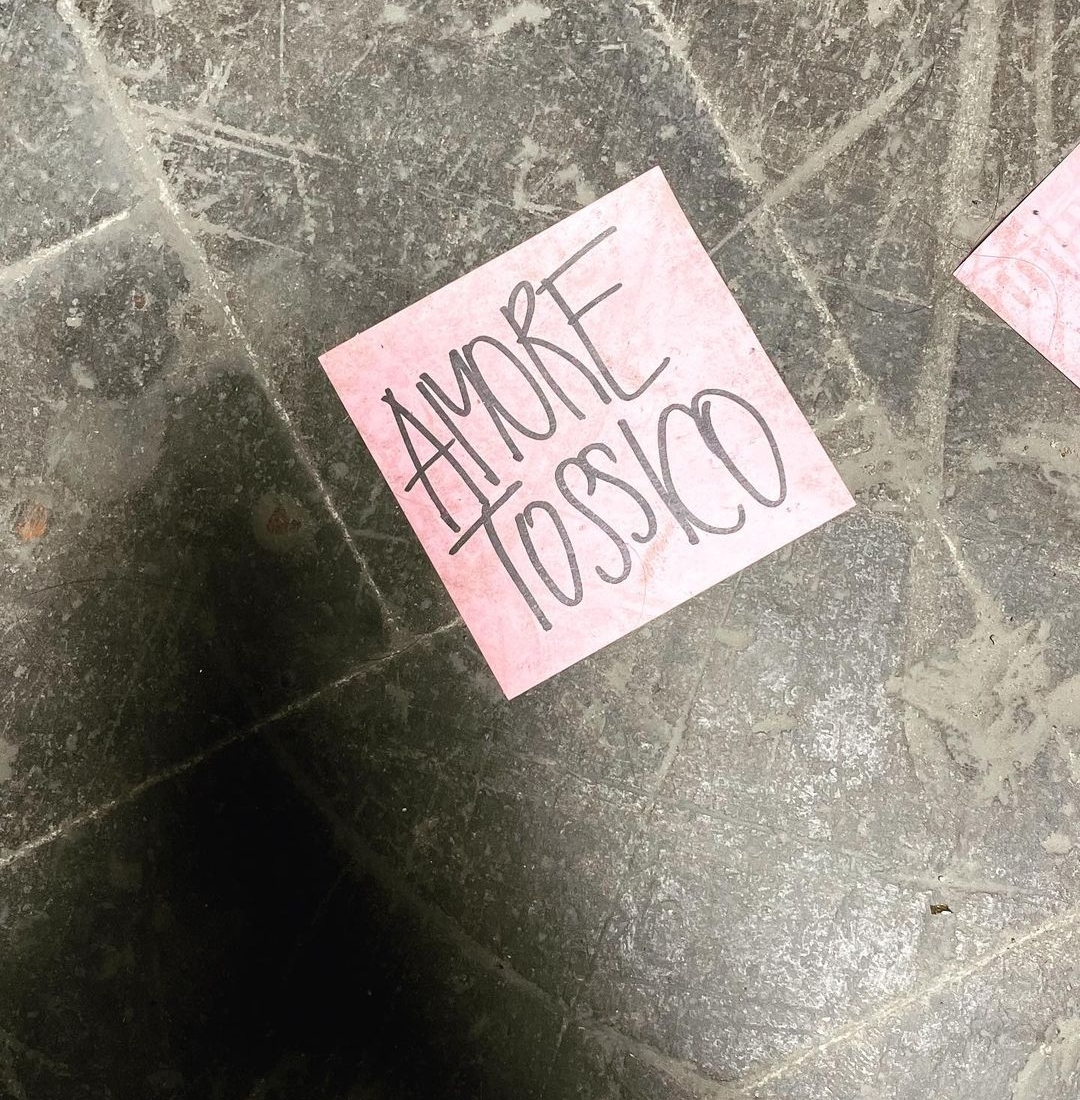 AMORE
TOSSICO